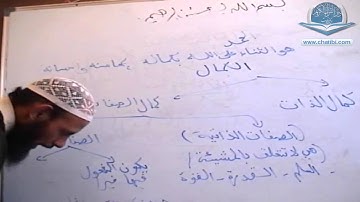 بسم الله الرحمن الرحيم
الحمد
هو الثناء على الله بكماله ومحاسنه وإحسانه
الكمال
كمال الذات
كمال الصفات
(الصفات الذاتية)
الصفات
هي لا تتعلق بالمشيئة
العلم - القدرة - القوة
يكون المفعول
فيها غير
www.chatibi.com